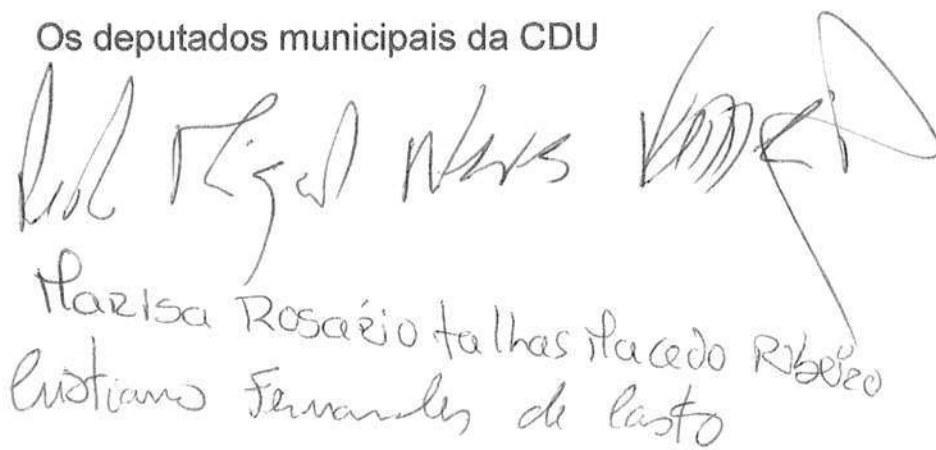 Os deputados municipais da CDU
Miguel Neves
Marisa Rosário Talhas Macedo Ribeiro
Cristiano Fernandes de Castro